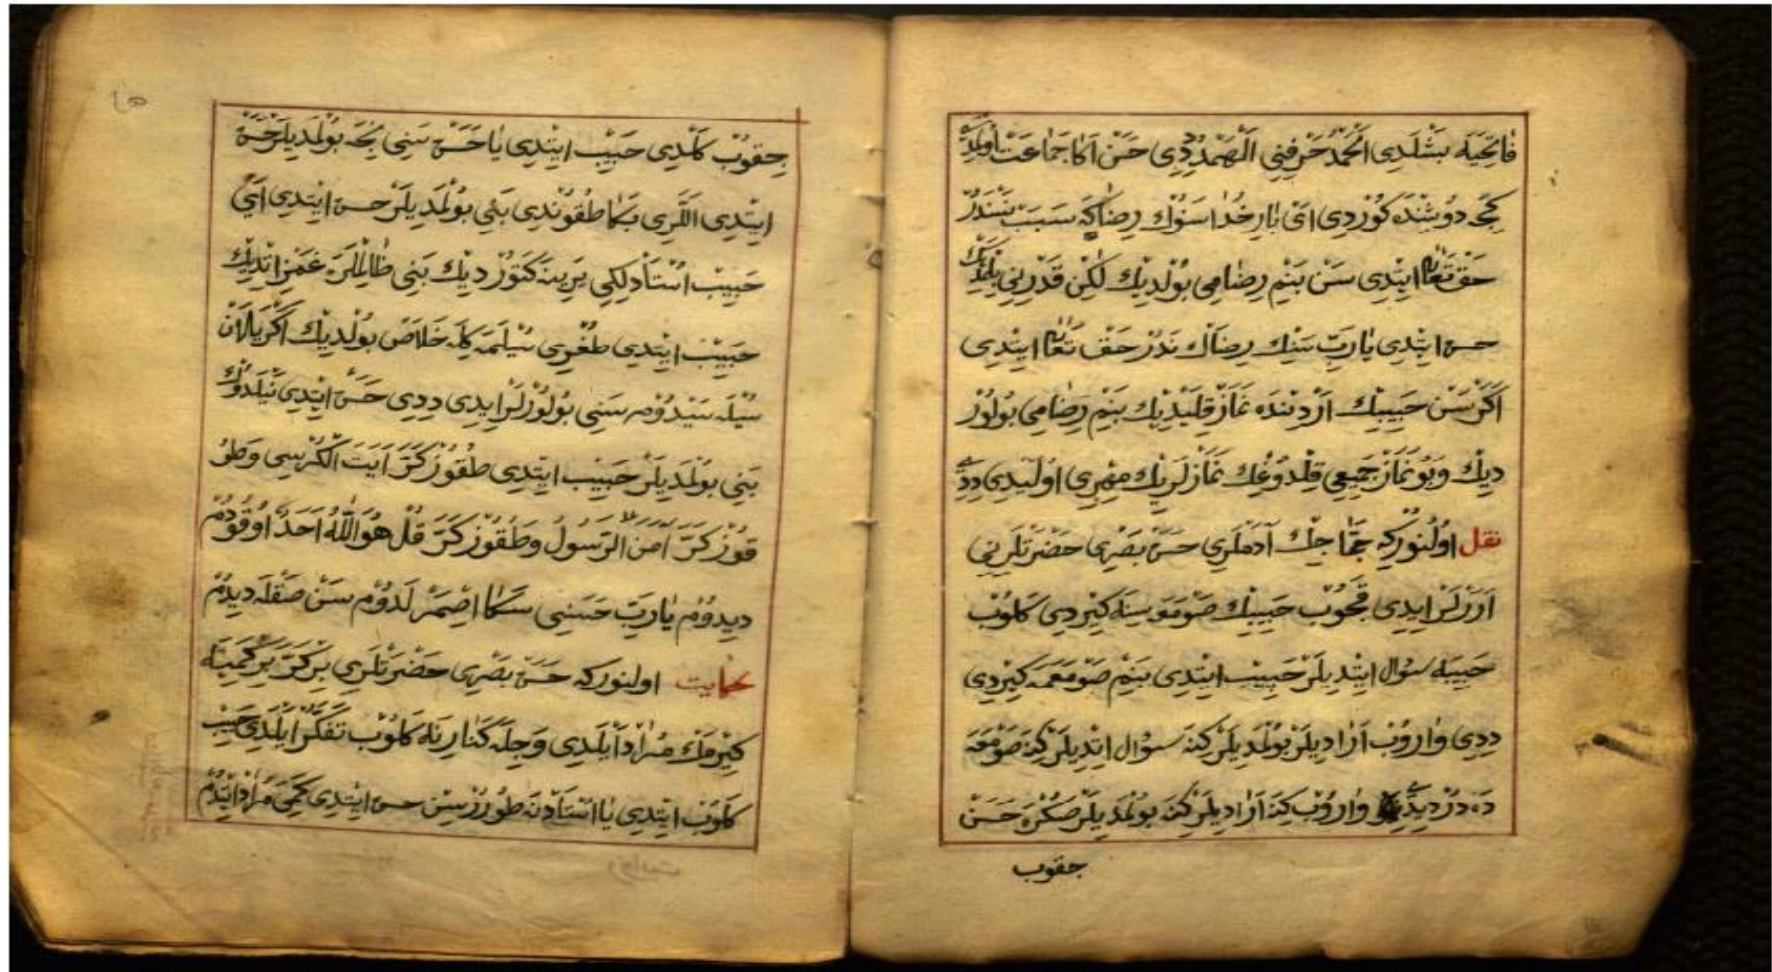 فَاتِحَيَه بَشْلَدِى الْحَمْدُ حَرْفِنِى الْهَمْدُ دِدِى حَسَنْ اَكَا جَمَاعَتْ اُولمَدِى
كِجَه دُوشِنْدَه كُورْدِى اَىْ بَارِ خُدَا سَنُوكْ رِضَاكَه سَبَبْ نَسْنَدُرْ
حَقْ تَعَالٰى ايتْدِى سَنْ بَنِمْ رِضَامِى بُولْدِيكْ لٰكِنْ قَدْرِنِى بِلْمَدِيكْ
حسن ايتْدِى يَارَبّ سَنِكْ رِضَاكْ نَدُرْ حَقْ تَعَالٰى ايتْدِى
اَكَرْ سَنْ حَبِيبِكْ اَرْدِنْدَه نَمَازْ قِلَيْدِيكْ بَنِمْ رِضَامِى بُولُورْ
دِيكْ وَبُو نَمَازْ جَمِيعِ قِلْدُوغِكْ نَمَازْلَرِيكْ مِهْرِى اُولَيْدِى دِدِى
نقل اُولُنُورْكِه حَجَّاجِكْ آدَمْلَرِى حَسَنْ بَصْرِى حَضْرَتْلَرِينِى
اَرَرْلَرْ ايدِى قَچُوبْ حَبِيبِكْ صَوْمَعَه سِنَه كِيرْدِى كَلُوبْ
حَبِيبَه سُوال ايتْدِيلَرْ حَبِيبْ ايتْدِى بَنِمْ صَوْمَعَمَه كِيرْدِى
دِدِى وَارُوبْ اَرَادِيلَرْ بُولْمَدِيلَرْ كِنَه سوُال ايتْدِيلَرْ كِنَه صَوْمَعَه
دَه دُرْ دِيدِى وَارُوبْ كِنَه اَرَادِيلَرْ كِنَه بُولْمَدِيلَرْ صُكْرَه حَسَنْ
جقوب
جِقُوبْ كَلْدِى حَبِيبْ ايتْدِى يَا حَسَنْ سَنِى نِجَه بُولْمَدِيلَرْ حَسَنْ
ايتْدِى اَلْلَرِى بَكَا طُقُونْدِى بَنِى بُولْمَدِيلَرْ حسن ايتْدِى اَىْ
حَبِيبْ اُسْتَادْلِكِى يَرِينَه كَتُورْدِيكْ بَنِى ظَالِمْلَرَه غَمْزْ اتْدِيكْ
حَبِيبْ ايتْدِى طُغْرِى سُيْلَمَه كِلَه خَلَاصْ بُولْدِيكْ اَكَرْ يَالَانْ
سُيْلَه سَيْدُومْ سَنِى بُولُورْلَرْ ايدِى دِدِى حَسَنْ ايتْدِى نَيْلَدُوكْ
بَنِى بُولْمَدِيلَرْ حَبِيبْ ايتْدِى طُقُوزْ كَرَّ اَيَتَ الْكُرْسِى وَطُ
قُوزْ كَرَّ اٰمَنَ الرَّسُولُ وَطُقُوزْ كَرَّ قُلْ هُوَ اللّٰهُ اَحَدْ اُوقُودُمْ
دِيدُومْ يَارَبّ حَسَنِى سَكَا اِصْمَرْلَدُومْ سَنْ صَقْلَه دِيدُمْ
حكايت اولنوركه حَسَنْ بَصْرِى حَضْرَتْلَرِى بِرْ كَرَّ بِرْ كَمِيَه
كِيرْمَكْ مُرَادْ اَيْلَدِى وَدِجْلَه كَنَارِينَه كَلُوبْ تَفَكُّرْ اَيْلَدِى حَبِيبْ
كَلُوبْ ايتْدِى يَا اُسْتَادْ نَه طُورُرْسِنْ حسن ايتْدِى كَمِى مُرَادْ ايتْدُمْ